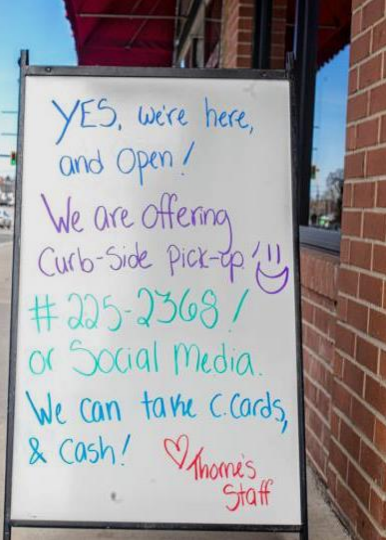 YES, we're here,
and Open!
We are offering
Curb-Side Pick-up!
# 225-2368!
or Social Media.
We can take C.Cards,
& Cash!
Thorne's
Staff